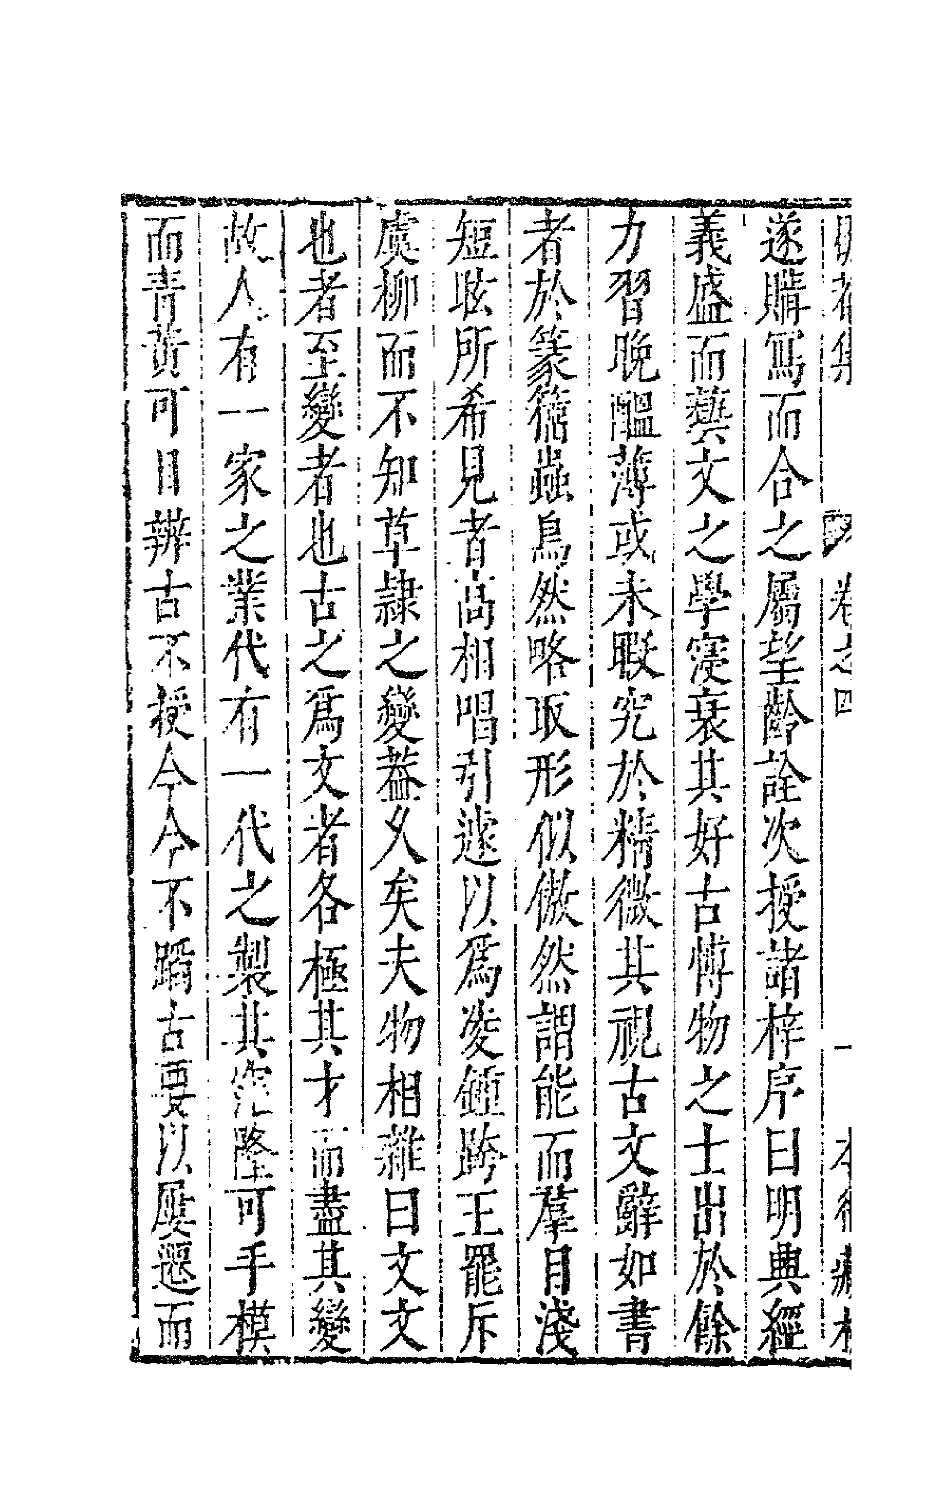 卷之四
遂購寫而合之屬望齡詮次授諸梓序曰明興經
義盛而藝文之學寖衰其好古博物之士出於餘
力習晚醞薄或未暇究於精微其視古文辭如書
者於篆籀蟲鳥然略取形似傲然謂能而羣目淺
短眩所希見者高相唱引遽以爲凌鍾跨王罷斥
虞柳而不知草隷之變葢久矣夫物相雜曰文文
也者至變者也古之爲文者各極其才而盡其變
故人有一家之業代有一代之製其窪隆可手模
而青黃可目辨古不授今今不蹈古要以屢遷而